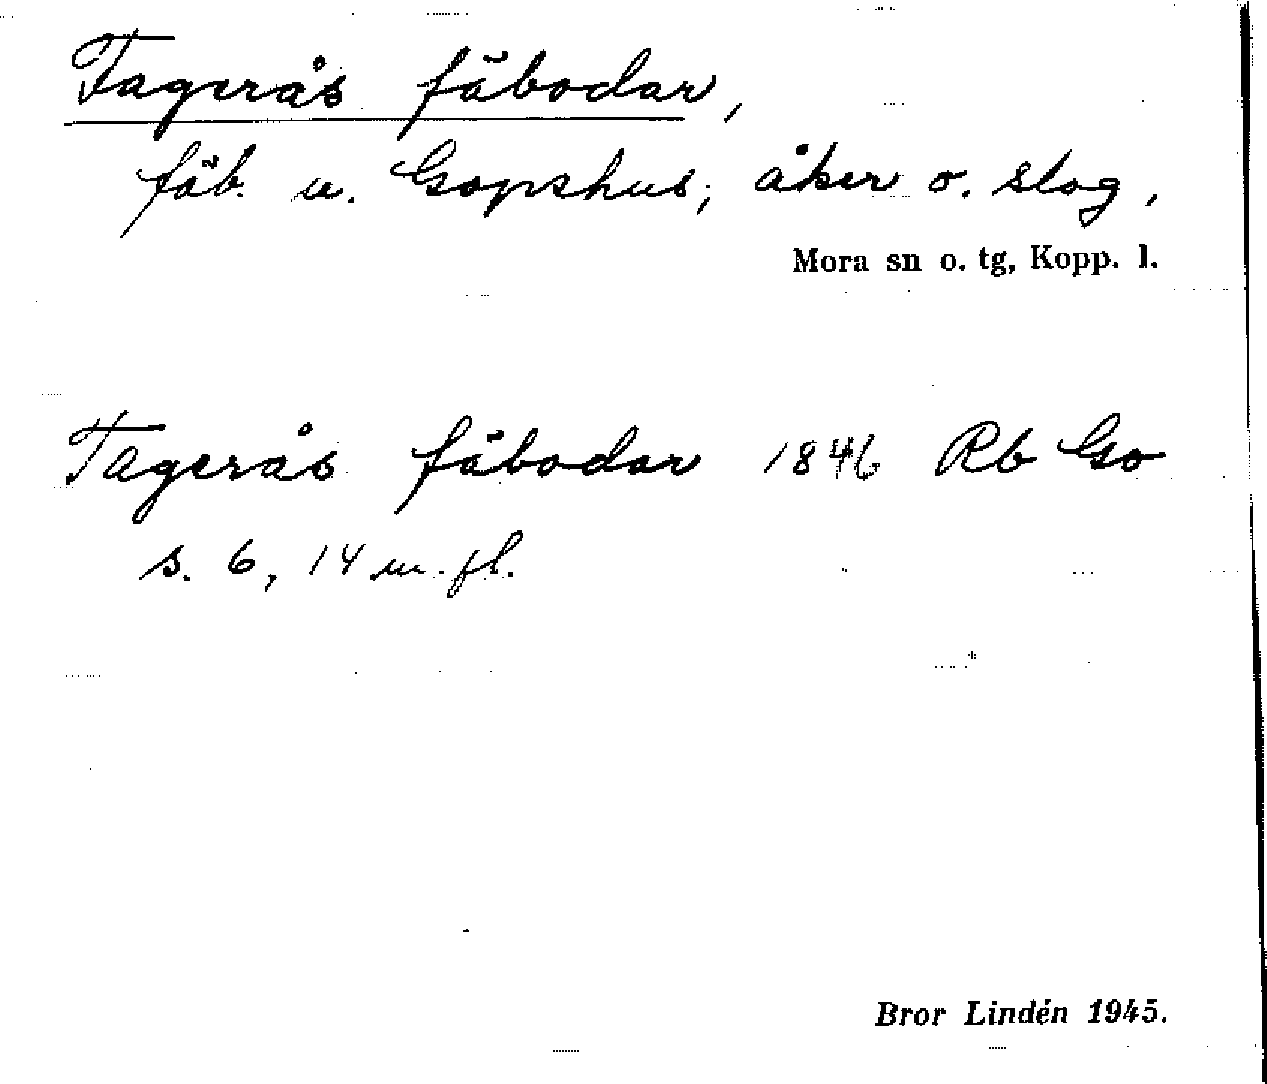 Tagerås fäbodar,
fäb. u. Gopshus; åker o. slog,
Mora sn o. tg, Kopp. l.
Tagerås fäbodar 1846 Rb Go
s. 6, 14 m. fl.
Bror Lindén 1945.